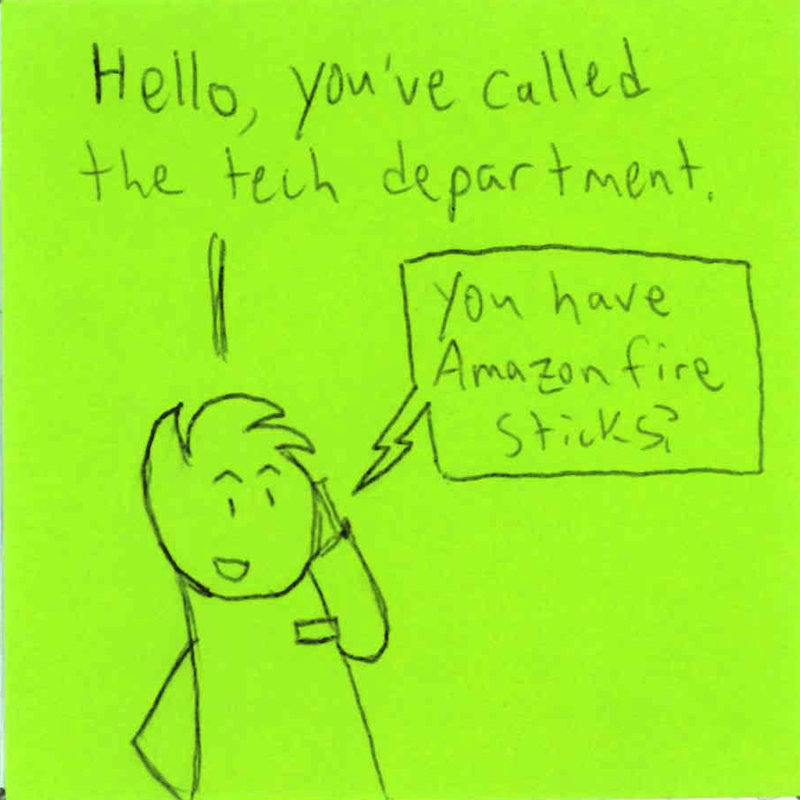 Hello, you've called
the tech department.
You have
Amazon fire
sticks?